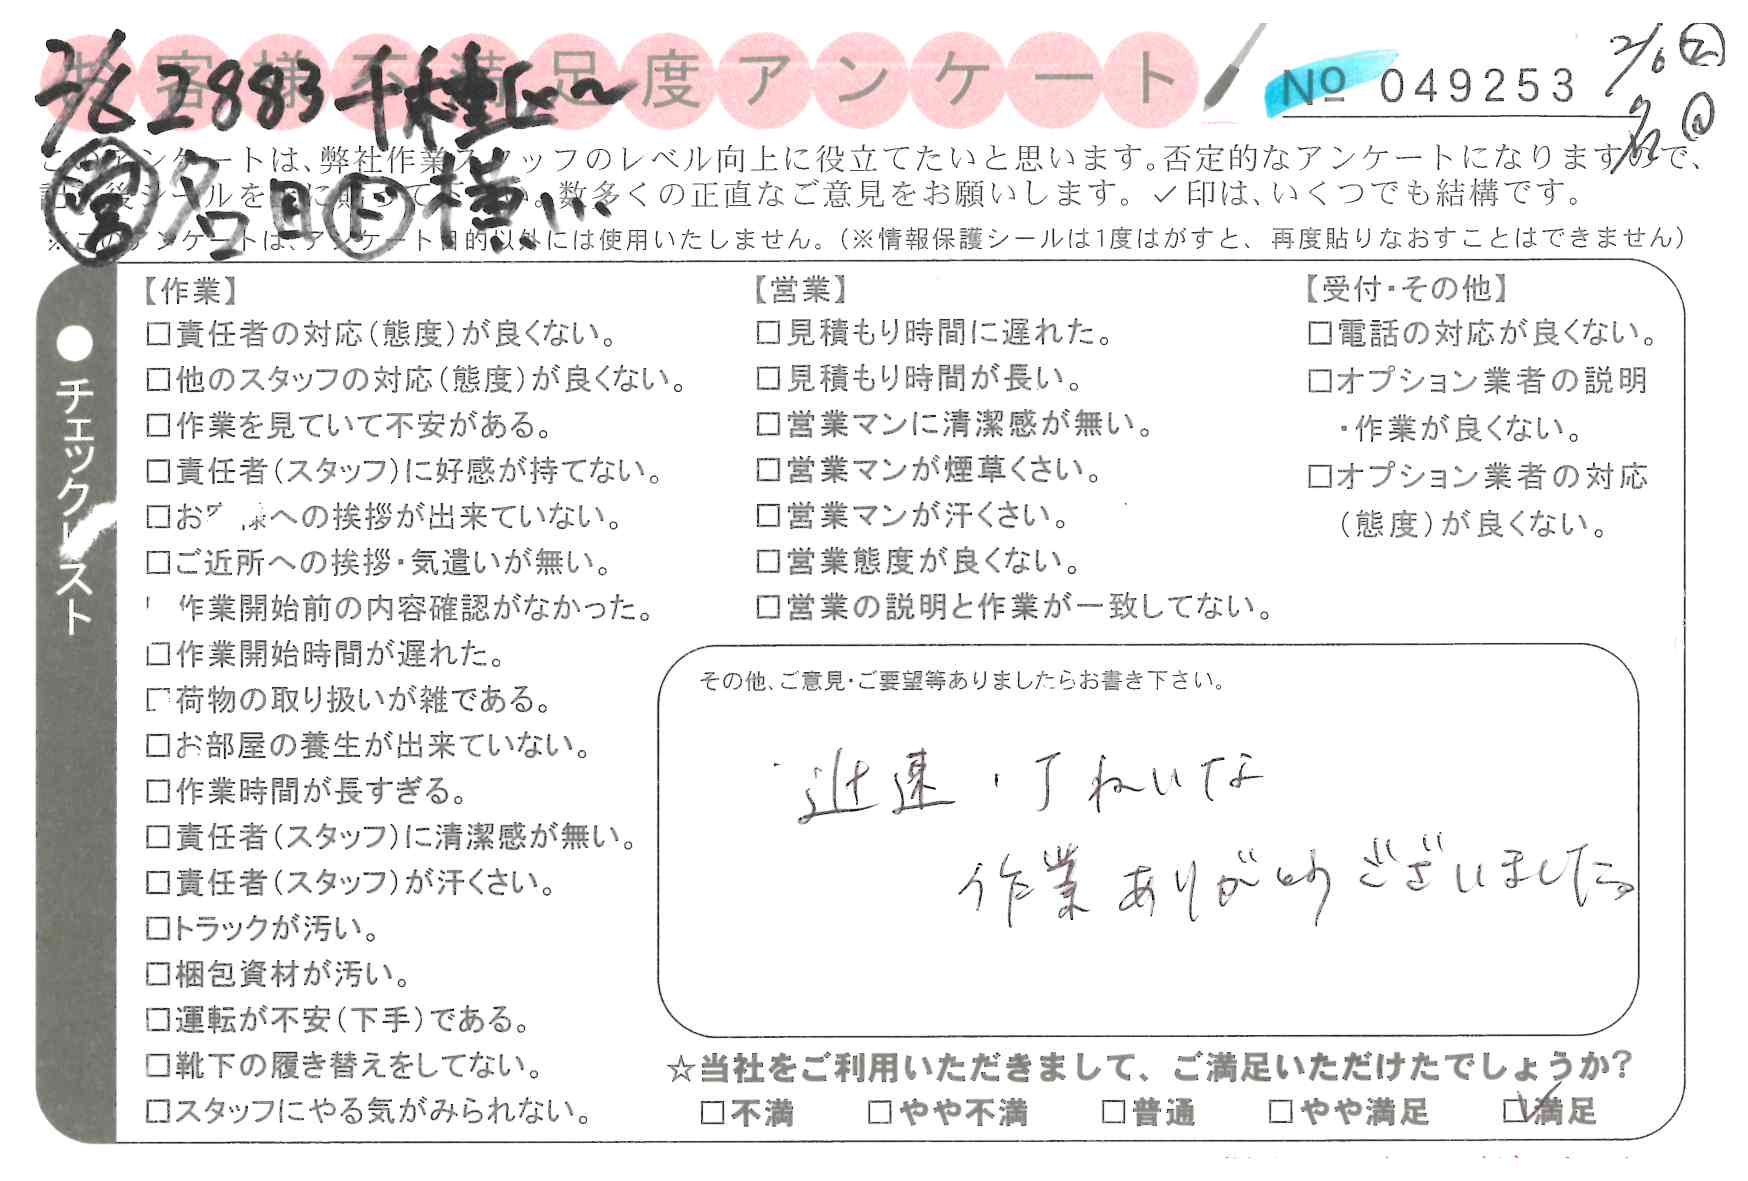 お客様不満足度アンケート
№ 049253
2/6
2/6 2883 千種区〜
このアンケートは、弊社作業スタッフのレベル向上に役立てたいと思います。否定的なアンケートになりますので、
記入後シールを上に貼って下さい。数多くの正直なご意見をお願いします。✓印は、いくつでも結構です。
※このアンケートは、アンケート目的以外には使用いたしません。(※情報保護シールは1度はがすと、再度貼りなおすことはできません)
●チェックリスト
【作業】
□責任者の対応(態度)が良くない。
□他のスタッフの対応(態度)が良くない。
□作業を見ていて不安がある。
□責任者(スタッフ)に好感が持てない。
□お客様への挨拶が出来ていない。
□ご近所への挨拶・気遣いが無い。
作業開始前の内容確認がなかった。
□作業開始時間が遅れた。
□荷物の取り扱いが雑である。
□お部屋の養生が出来ていない。
□作業時間が長すぎる。
□責任者(スタッフ)に清潔感が無い。
□責任者(スタッフ)が汗くさい。
□トラックが汚い。
□梱包資材が汚い。
□運転が不安(下手)である。
□靴下の履き替えをしてない。
□スタッフにやる気がみられない。
【営業】
□見積もり時間に遅れた。
□見積もり時間が長い。
□営業マンに清潔感が無い。
□営業マンが煙草くさい。
□営業マンが汗くさい。
□営業態度が良くない。
□営業の説明と作業が一致してない。
【受付・その他】
□電話の対応が良くない。
□オプション業者の説明
・作業が良くない。
□オプション業者の対応
(態度)が良くない。
その他、ご意見・ご要望等ありましたらお書き下さい。
迅速・丁ねいな
作業ありがとうございました。
☆当社をご利用いただきまして、ご満足いただけたでしょうか?
□不満 □やや不満 □普通 □やや満足 ☑満足